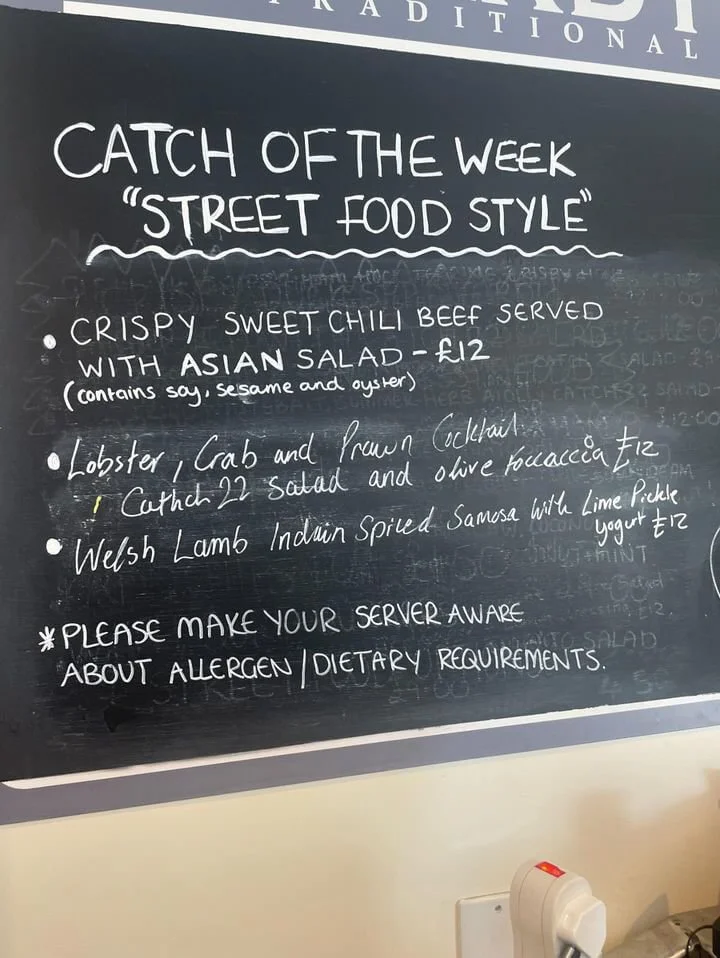 TRADITIONAL
CATCH OF THE WEEK
"STREET FOOD STYLE"
• CRISPY SWEET CHILI BEEF SERVED
WITH ASIAN SALAD - £12
(contains soy, sesame and oyster)
• Lobster, Crab and Prawn Cocktail
, Cathch 22 Salad and olive foccaccia £12
• Welsh Lamb Indain Spiced Samosa with Lime Pickle
yogurt £12
*PLEASE MAKE YOUR SERVER AWARE
ABOUT ALLERGEN/DIETARY REQUIREMENTS.